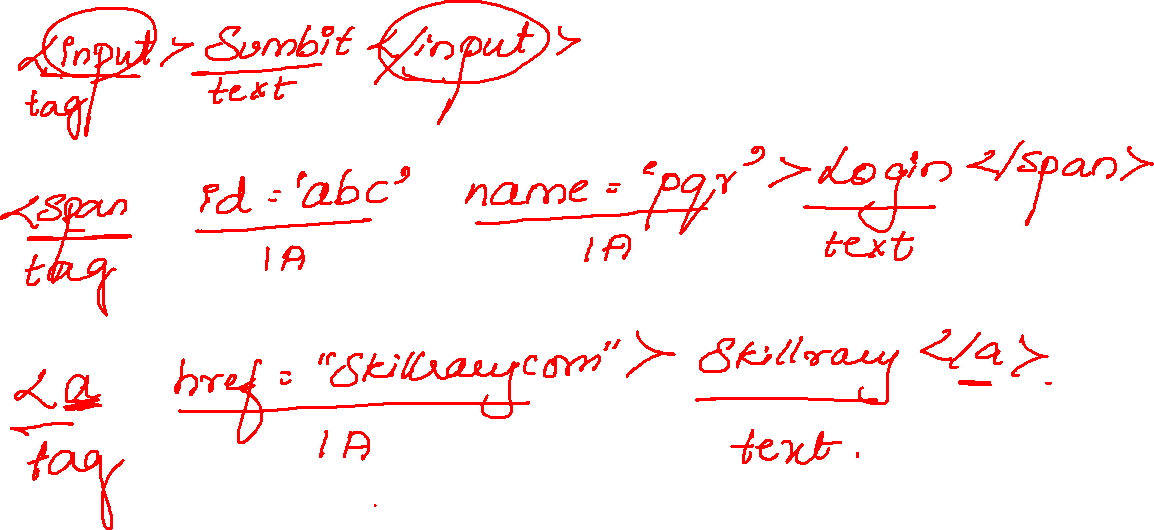 <input> Sumbit </input>
tag text
<span id = 'abc' name = 'pqr' > Login </span>
tag 1A 1A text
<a href = "Skillrarycom" > Skillrary </a>.
tag 1A text.